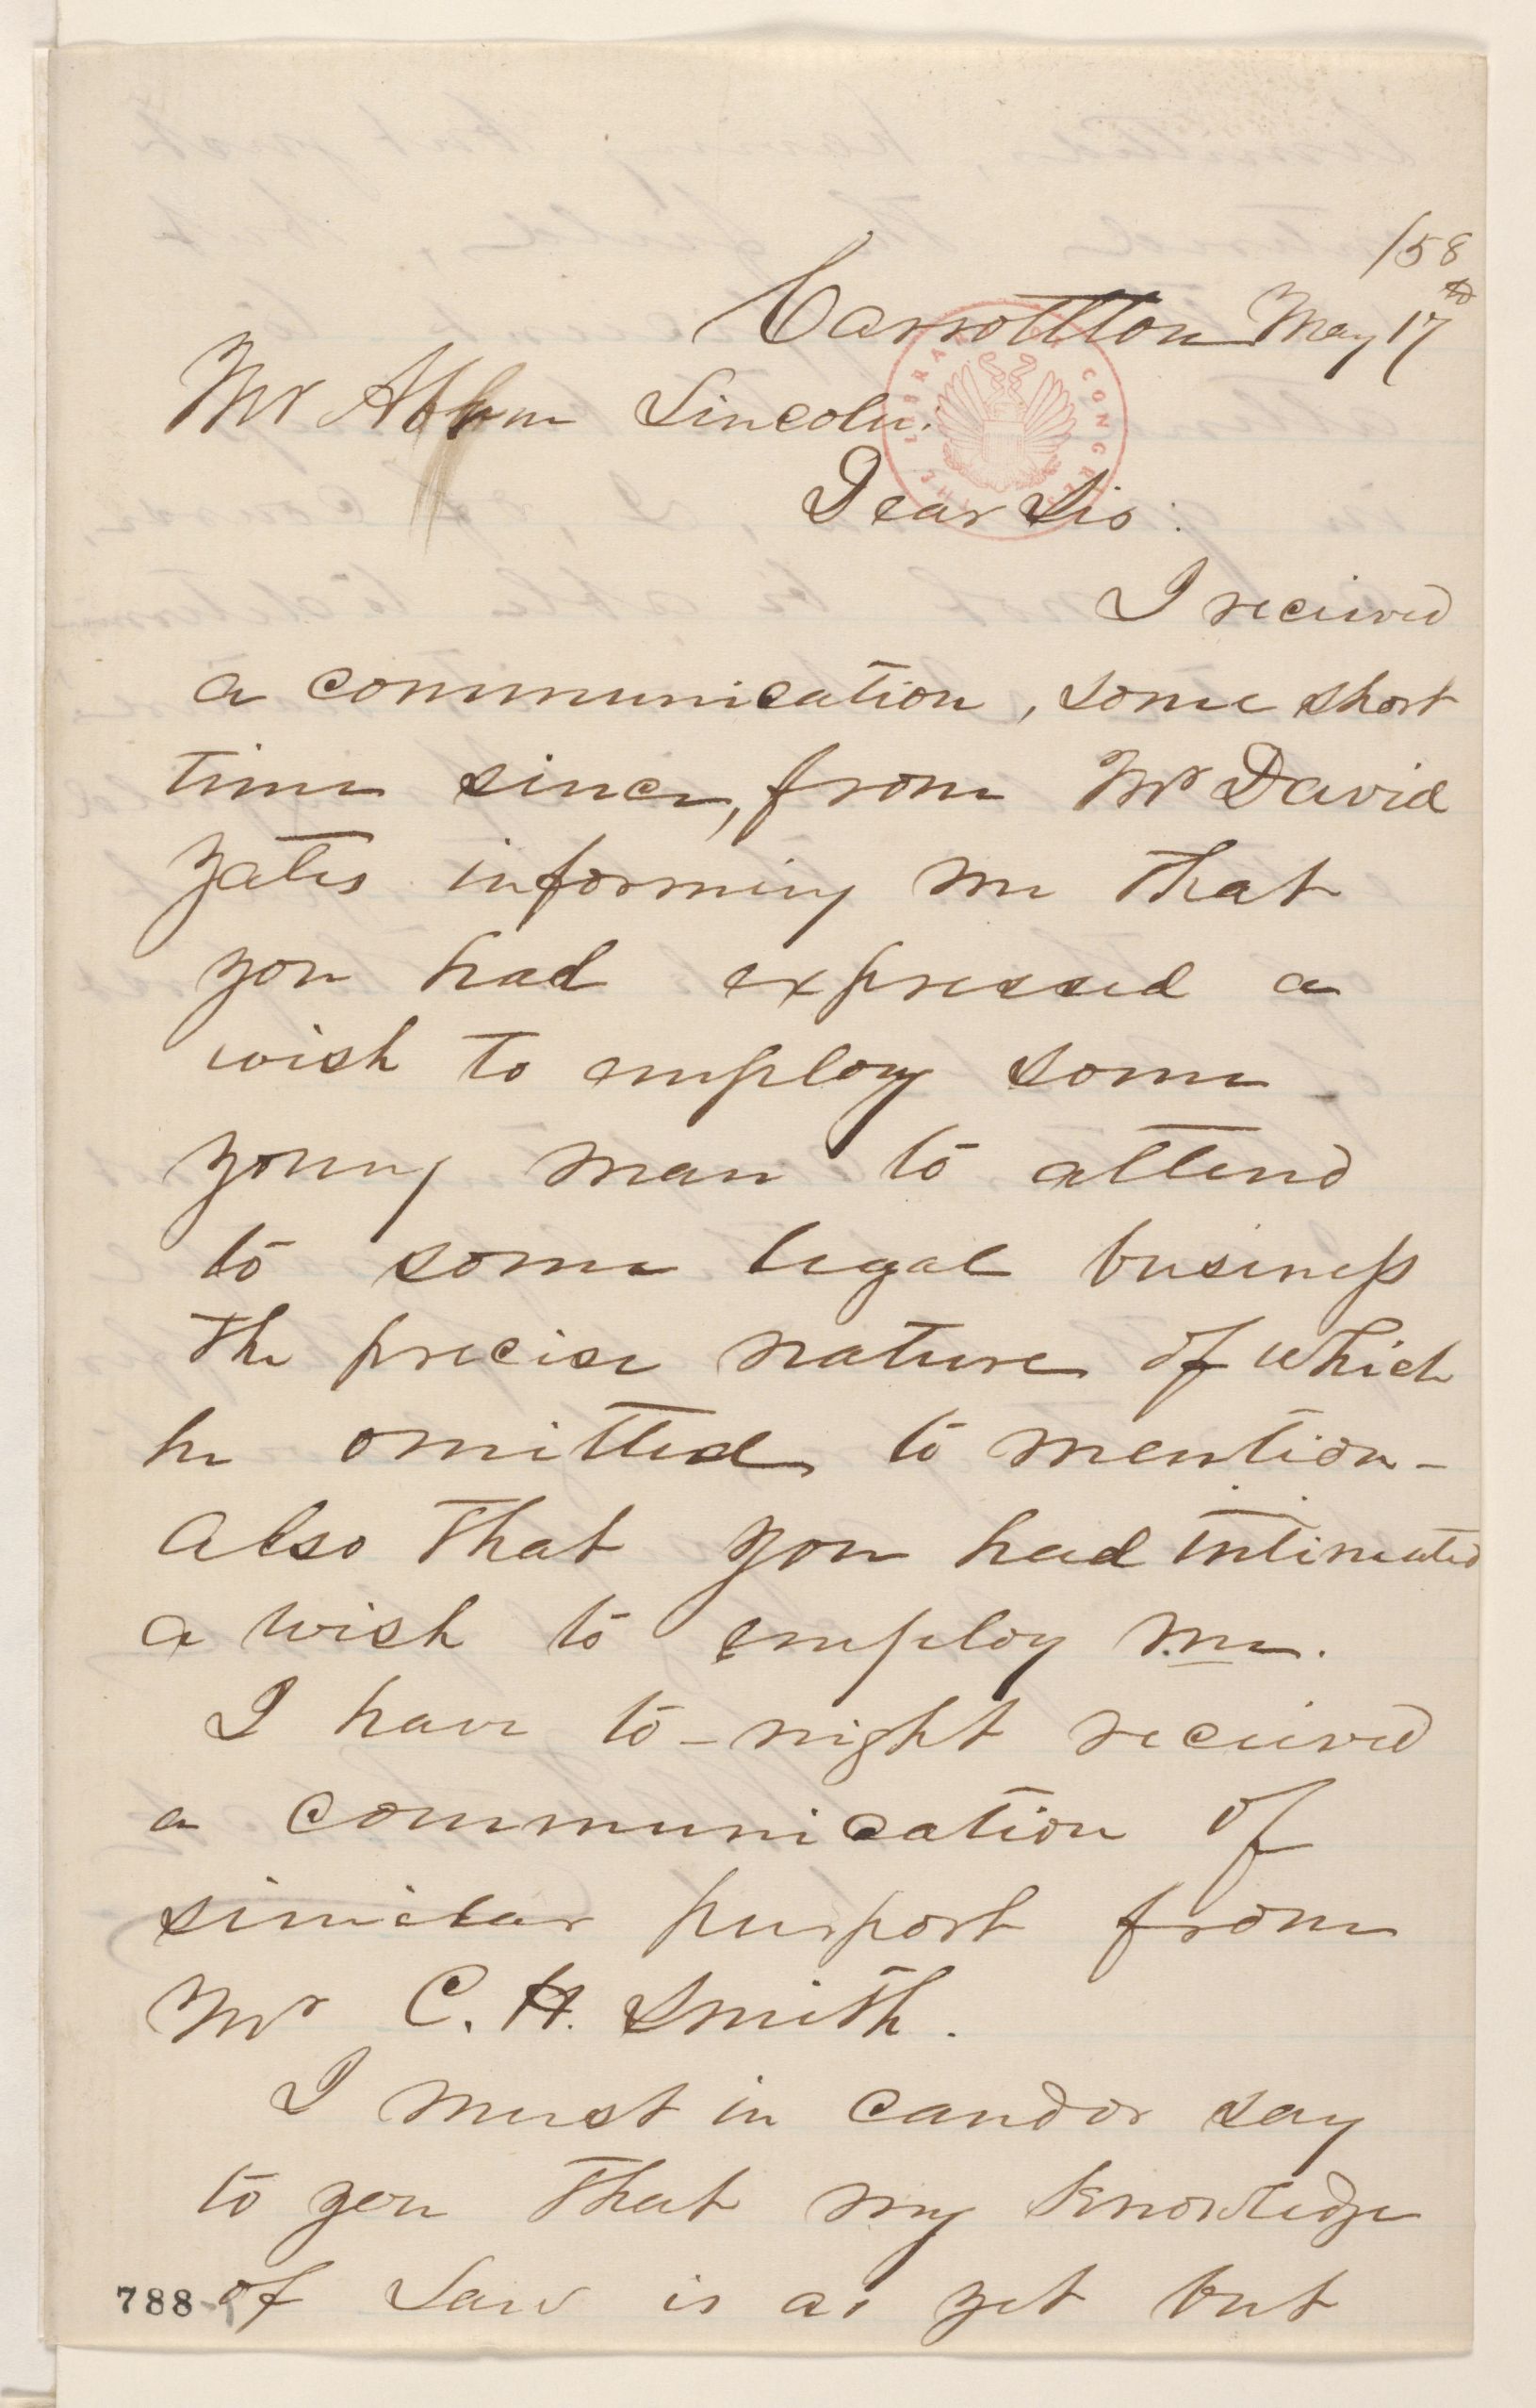 /58
Carrollton May 17th
Mr Abham Lincoln.
THE LIBRARY OF CONGRESS
Dear Sir:
I recieved
a communication, some short
time since, from Mr David
Yates informing me that
you had expressed a
wish to employ some
young man to attend
to some legal business
the precise nature of which
he omitted to mention-
Also that you had intimated
a wish to employ me.
I have to-night recieved
a communication of
similar purport from
Mr C. H. Smith.
I must in candor say
to you that my knowledge
of Law is as yet but
788